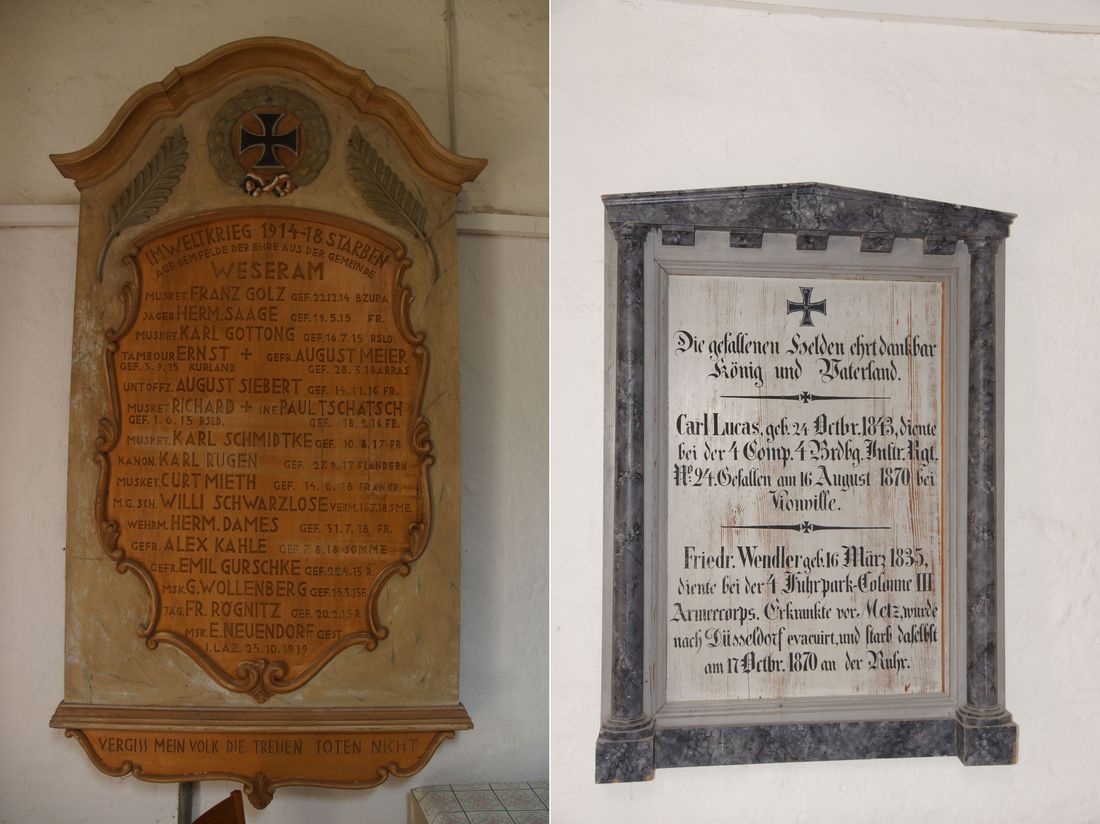 IM WELTKRIEG 1914-18 STARBEN
AUF DEM FELDE DER EHRE AUS DER GEMEINDE
WESERAM
MUSKET. FRANZ GOLZ GEF. 22.12.14 BZURA
JÄGER HERM. SAAGE GEF. 19.5.15 FR.
MUSKET. KARL GOTTONG GEF. 16.7.15 RSLD.
TAMBOUR ERNST + GEFR. AUGUST MEIER
GEF. 3.9.15 KURLAND GEF. 28.3.18 ARRAS
UNTOFFZ. AUGUST SIEBERT GEF. 14.11.16 FR.
MUSKET. RICHARD + INF. PAUL TSCHATSCH
GEF. 1.6.15 RSLD. GEF. 18.2.16 FR.
MUSKET. KARL SCHMIDTKE GEF. 10.8.17 FR.
KANON. KARL RUGEN GEF. 27.9.17 FLANDERN
MUSKET. CURT MIETH GEF. 14.6.18 FRANKR.
M.G. SCH. WILLI SCHWARZLOSE VERM. 16.7.18 SME.
WEHRM. HERM. DAMES GEF. 31.7.18 FR.
GEFR. ALEX KAHLE GEF. 7.8.18 SOMME
GEFR. EMIL GURSCHKE GEF. 22.4.15 R.
MSK. G. WOLLENBERG GEF. 15.3.15 R.
JÄG. FR. RÖGNITZ GEF. 20.2.15 R.
MSK. E. NEUENDORF GEST.
I. LAZ. 25.10.1919
VERGISS MEIN VOLK DIE TREUEN TOTEN NICHT
Die gefallenen Helden ehrt dankbar
König und Vaterland.
Carl Lucas, geb. 24 Octbr. 1843, diente
bei der 4 Comp. 4 Brdbg. Inftr. Rgt.
No. 24. Gefallen am 16 August 1870 bei
Vionville.
Friedr. Wendler geb. 16 März 1835,
diente bei der 4 Fuhrpark-Colonne III
Armeecorps. Erkrankte vor Metz, wurde
nach Düsseldorf evacuirt, und starb daselbst
am 17 Octbr. 1870 an der Ruhr.